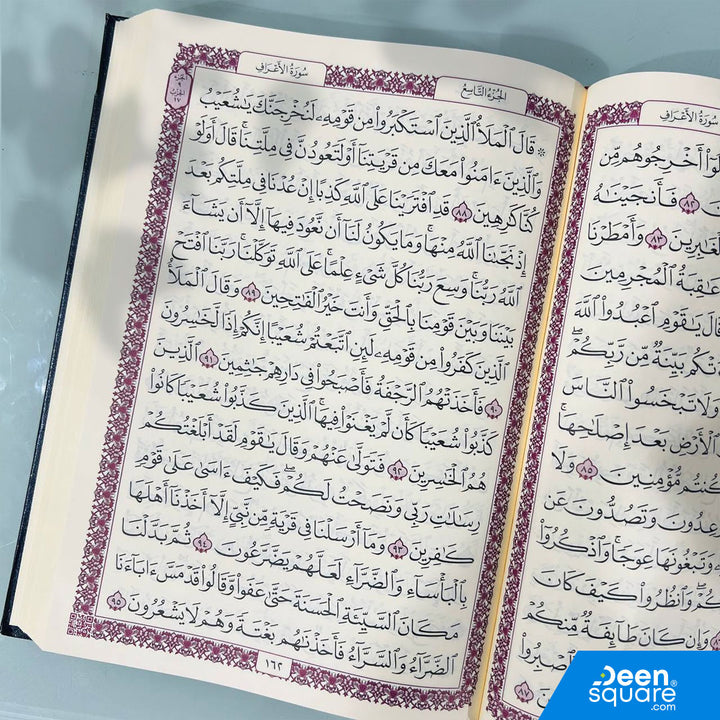 سُورَةُ الأَعْرَافِ
أَخْرِجُوهُم مِّن
٨٢ فَأَنجَيْنَٰهُ
٨٣ وَأَمْطَرْنَا
عَٰقِبَةُ ٱلْمُجْرِمِينَ
يَٰقَوْمِ ٱعْبُدُوا۟ ٱللَّهَ
بَيِّنَةٌ مِّن رَّبِّكُمْ ۖ
وَلَا تَبْخَسُوا۟ ٱلنَّاسَ
ٱلْأَرْضِ بَعْدَ إِصْلَٰحِهَا ۚ
كُنتُم مُّؤْمِنِينَ ٨٥ وَلَا
وَتَصُدُّونَ عَن
وَتَبْغُونَهَا عِوَجًا ۚ وَٱذْكُرُوٓا۟
وَٱنظُرُوا۟ كَيْفَ كَانَ
وَإِن كَانَ طَآئِفَةٌ مِّنكُمْ
٨٧
الجُزْءُ التَّاسِعُ
سُورَةُ الأَعْرَافِ
الحِزْبُ
١٧
۞ قَالَ ٱلْمَلَأُ ٱلَّذِينَ ٱسْتَكْبَرُوا۟ مِن قَوْمِهِۦ لَنُخْرِجَنَّكَ يَٰشُعَيْبُ
وَٱلَّذِينَ ءَامَنُوا۟ مَعَكَ مِن قَرْيَتِنَآ أَوْ لَتَعُودُنَّ فِى مِلَّتِنَا ۚ قَالَ أَوَلَوْ
كُنَّا كَٰرِهِينَ ٨٨ قَدِ ٱفْتَرَيْنَا عَلَى ٱللَّهِ كَذِبًا إِنْ عُدْنَا فِى مِلَّتِكُم بَعْدَ
إِذْ نَجَّىٰنَا ٱللَّهُ مِنْهَا ۚ وَمَا يَكُونُ لَنَآ أَن نَّعُودَ فِيهَآ إِلَّآ أَن يَشَآءَ
ٱللَّهُ رَبُّنَا ۚ وَسِعَ رَبُّنَا كُلَّ شَىْءٍ عِلْمًا ۚ عَلَى ٱللَّهِ تَوَكَّلْنَا ۚ رَبَّنَا ٱفْتَحْ
بَيْنَنَا وَبَيْنَ قَوْمِنَا بِٱلْحَقِّ وَأَنتَ خَيْرُ ٱلْفَٰتِحِينَ ٨٩ وَقَالَ ٱلْمَلَأُ
ٱلَّذِينَ كَفَرُوا۟ مِن قَوْمِهِۦ لَئِنِ ٱتَّبَعْتُمْ شُعَيْبًا إِنَّكُمْ إِذًا لَّخَٰسِرُونَ
٩٠ فَأَخَذَتْهُمُ ٱلرَّجْفَةُ فَأَصْبَحُوا۟ فِى دَارِهِمْ جَٰثِمِينَ ٩١ ٱلَّذِينَ
كَذَّبُوا۟ شُعَيْبًا كَأَن لَّمْ يَغْنَوْا۟ فِيهَا ۚ ٱلَّذِينَ كَذَّبُوا۟ شُعَيْبًا كَانُوا۟
هُمُ ٱلْخَٰسِرِينَ ٩٢ فَتَوَلَّىٰ عَنْهُمْ وَقَالَ يَٰقَوْمِ لَقَدْ أَبْلَغْتُكُمْ
رِسَٰلَٰتِ رَبِّى وَنَصَحْتُ لَكُمْ ۖ فَكَيْفَ ءَاسَىٰ عَلَىٰ قَوْمٍ
كَٰفِرِينَ ٩٣ وَمَآ أَرْسَلْنَا فِى قَرْيَةٍ مِّن نَّبِىٍّ إِلَّآ أَخَذْنَآ أَهْلَهَا
بِٱلْبَأْسَآءِ وَٱلضَّرَّآءِ لَعَلَّهُمْ يَضَّرَّعُونَ ٩٤ ثُمَّ بَدَّلْنَا
مَكَانَ ٱلسَّيِّئَةِ ٱلْحَسَنَةَ حَتَّىٰ عَفَوا۟ وَّقَالُوا۟ قَدْ مَسَّ ءَابَآءَنَا
ٱلضَّرَّآءُ وَٱلسَّرَّآءُ فَأَخَذْنَٰهُم بَغْتَةً وَهُمْ لَا يَشْعُرُونَ ٩٥
١٦٢
Deen
square®
.com